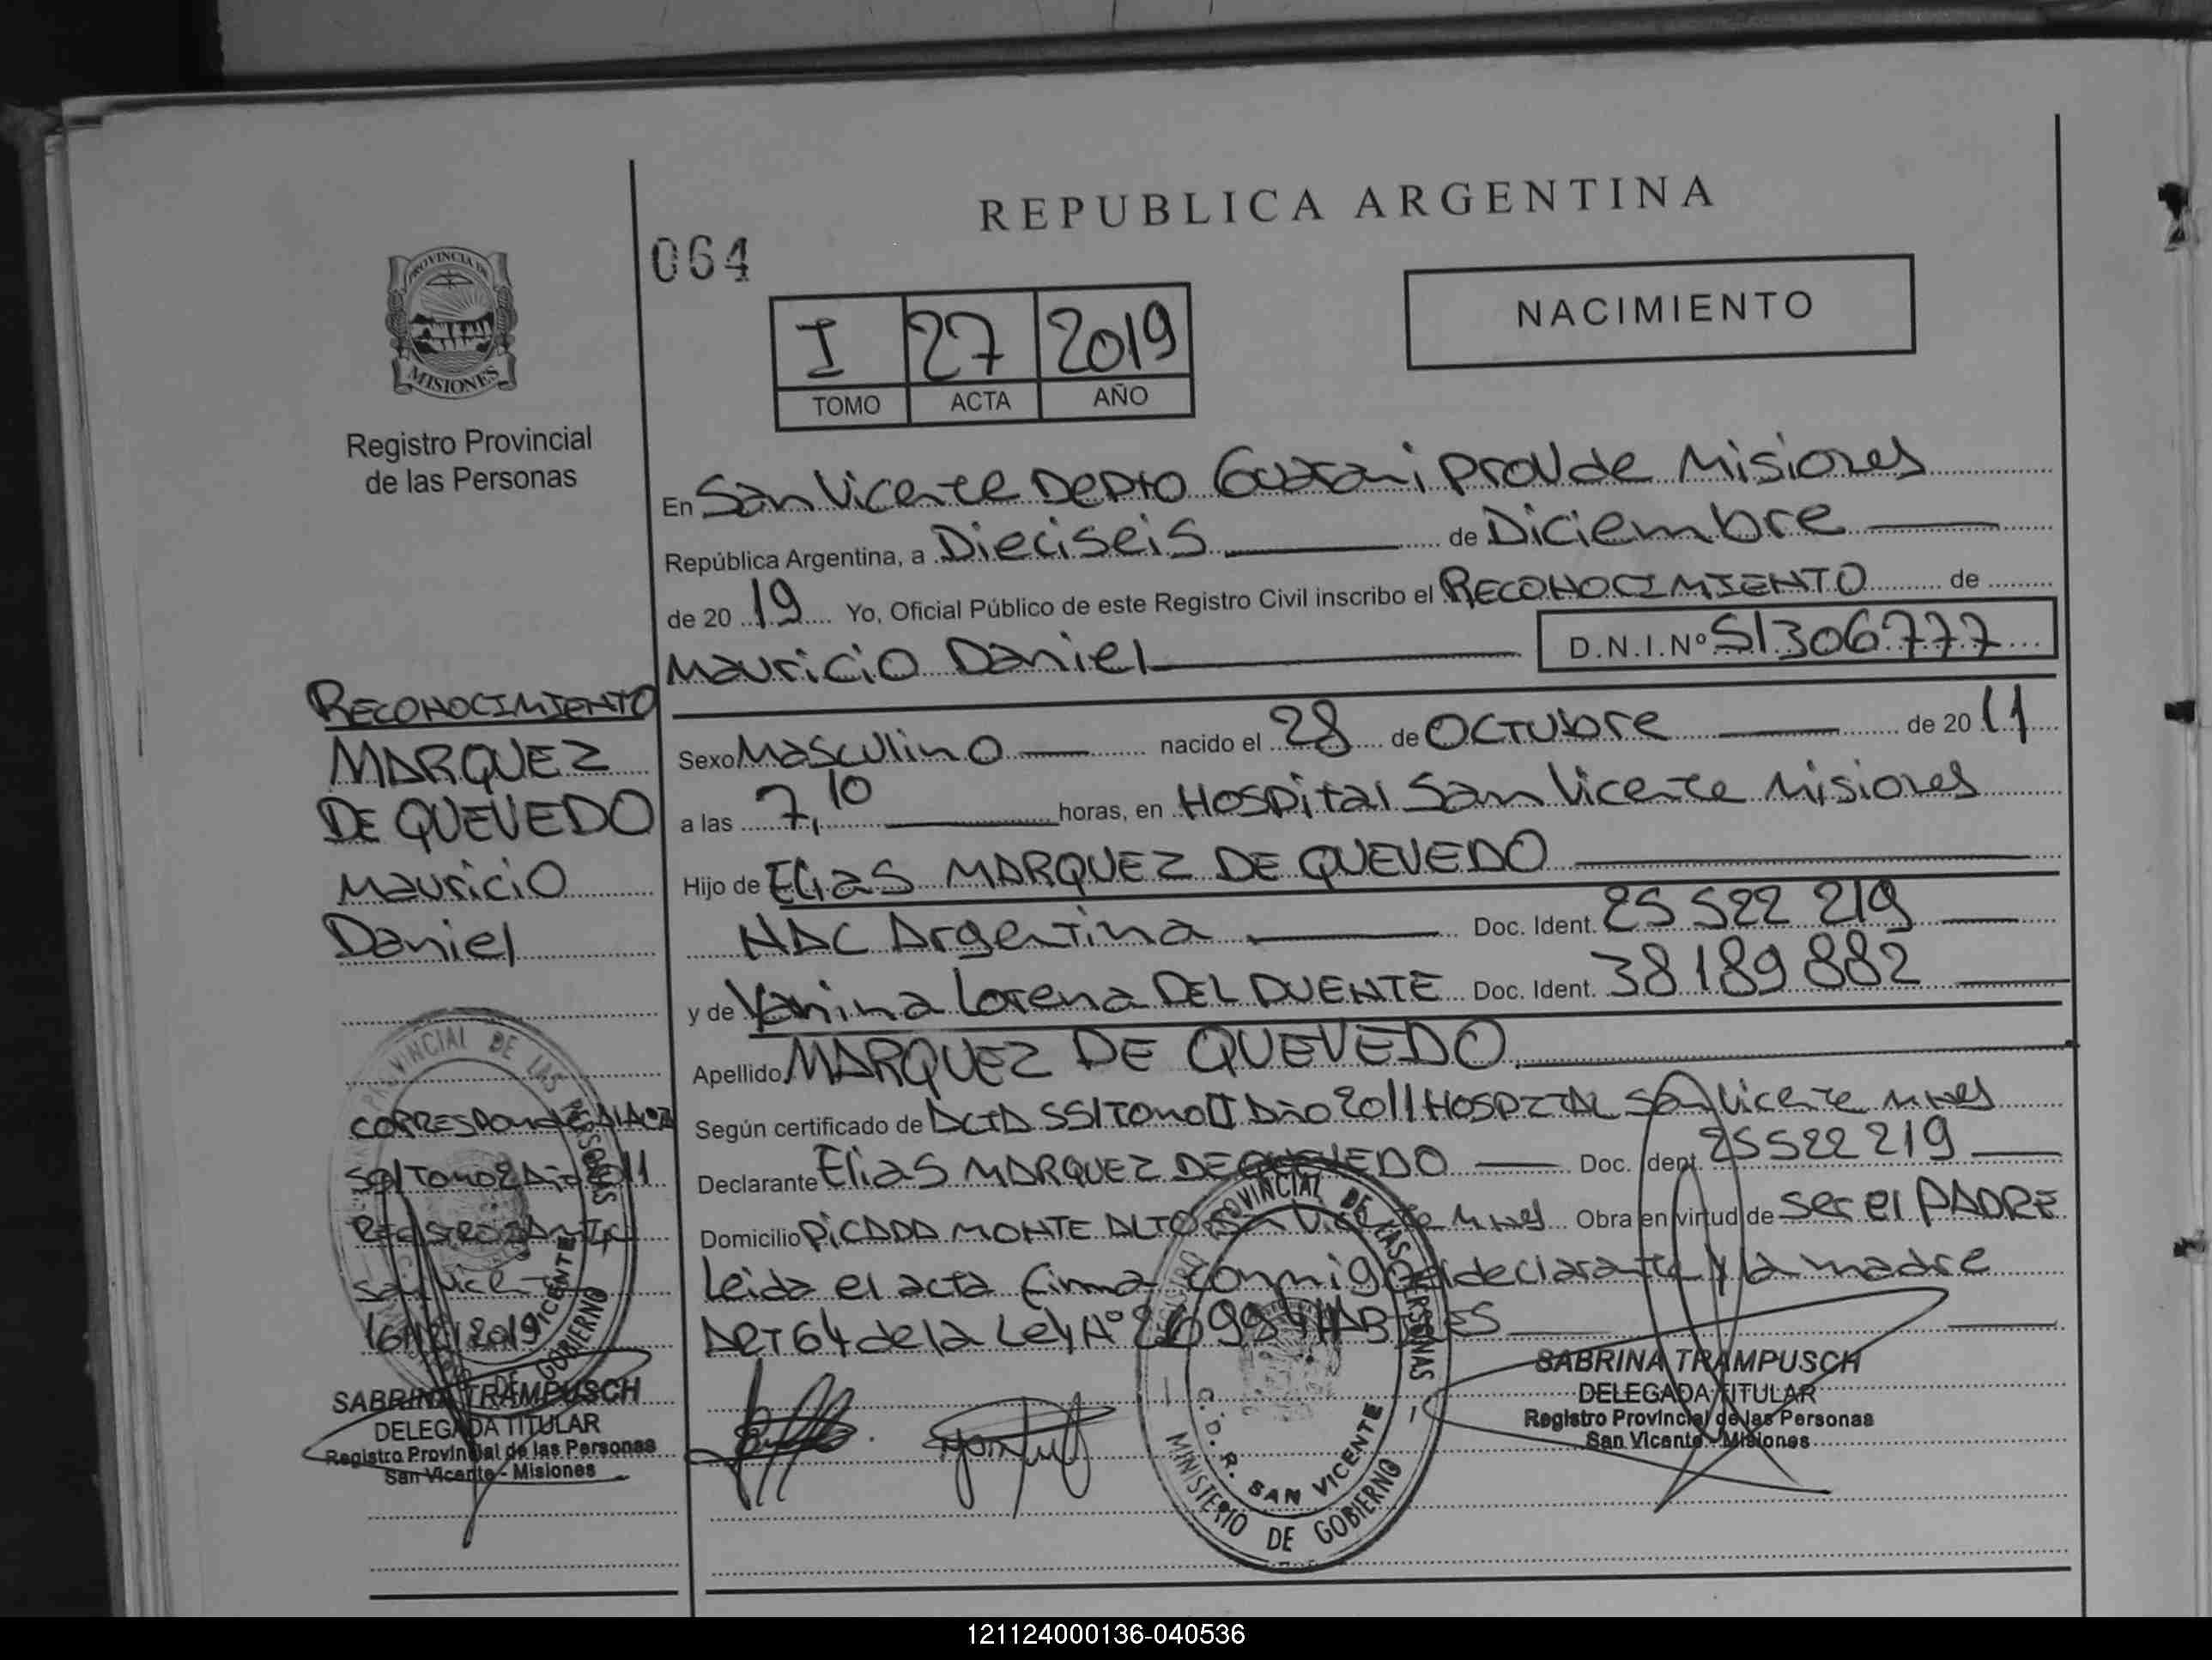 REPUBLICA ARGENTINA
064
NACIMIENTO
I 27 2019
TOMO ACTA AÑO
PROVINCIA DE
MISIONES
Registro Provincial
de las Personas
En San Vicente Depto Guarani Prov de Misiones
República Argentina, a Dieciseis de Diciembre
de 20 19 Yo, Oficial Público de este Registro Civil inscribo el RECONOCIMIENTO de
Mauricio Daniel D.N.I.Nº 51306777
Sexo Masculino nacido el 28 de OCTUbre de 20 11
a las 7,10 horas, en Hospital San Vicente Misiones
Hijo de Elias MARQUEZ DE QUEVEDO
NAC Argentina Doc. Ident. 25 522 219
y de Yanina Lorena DEL PUENTE Doc. Ident. 38 189 882
Apellido MARQUEZ DE QUEVEDO
Según certificado de ACTA 551 Tomo II Año 2011 HOSPITAL San Vicente Mnes
Declarante Elias MARQUEZ DE QUEVEDO Doc. Ident. 25522 219
Domicilio PICADA MONTE ALTO San Vicente Mnes Obra en virtud de ser el PADRE
Leida el acta firma conmigo el declarante y la madre
ART 64 de la Ley Nº 26994
RECONOCIMIENTO
MARQUEZ
DE QUEVEDO
Mauricio
Daniel
16/12/2019
SABRINA TRAMPUSCH
DELEGADA TITULAR
Registro Provincial de las Personas
San Vicente - Misiones
PROVINCIAL DE LAS PERSONAS
C.D.R. SAN VICENTE
MINISTERIO DE GOBIERNO
SABRINA TRAMPUSCH
DELEGADA TITULAR
Registro Provincial de las Personas
San Vicente - Misiones
121124000136-040536